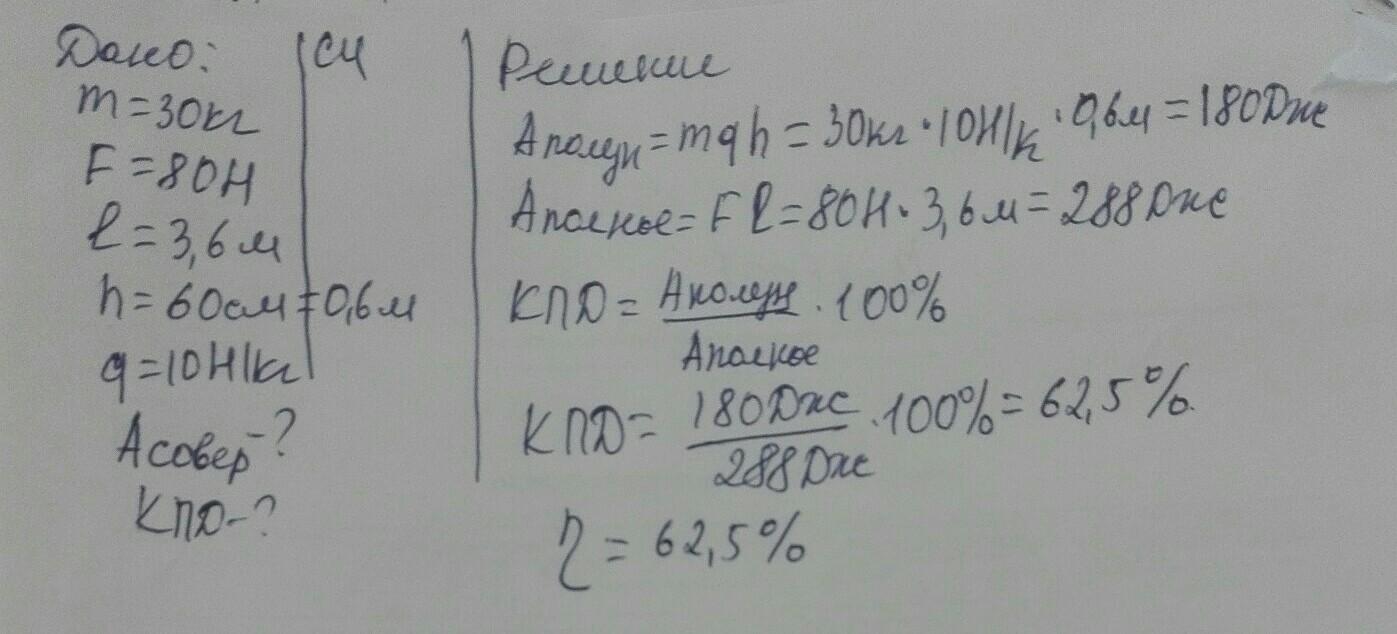 Дано:
СИ
m=30кг
F=80Н
l=3,6м
h=60см=0,6м
g=10Н/кг
Асовер-?
КПД-?
Решение
Аполезн=mgh=30кг·10Н/к·0,6м=180Дж
Аполное=Fl=80Н·3,6м=288Дж
КПД=Аполезн/Аполное·100%
КПД=180Дж/288Дж·100%=62,5%.
η=62,5%